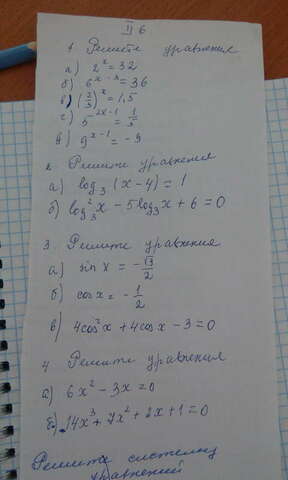 II б
1. Решите уравнения
а) 2^x = 32
б) 6^{x-3} = 36
в) (2/3)^x = 1,5
г) 5^{2x-1} = 1/5
д) 9^{x-1} = -9
2. Решите уравнения
а) log₃ (x-4) = 1
б) log₃² x - 5 log₃ x + 6 = 0
3. Решите уравнения
а) sin x = -√3/2
б) cos x = -1/2
в) 4cos²x + 4cos x - 3 = 0
4. Решите уравнения
а) 6x² - 3x = 0
б) 14x³ + 7x² + 2x + 1 = 0
Решите систему
уравнений